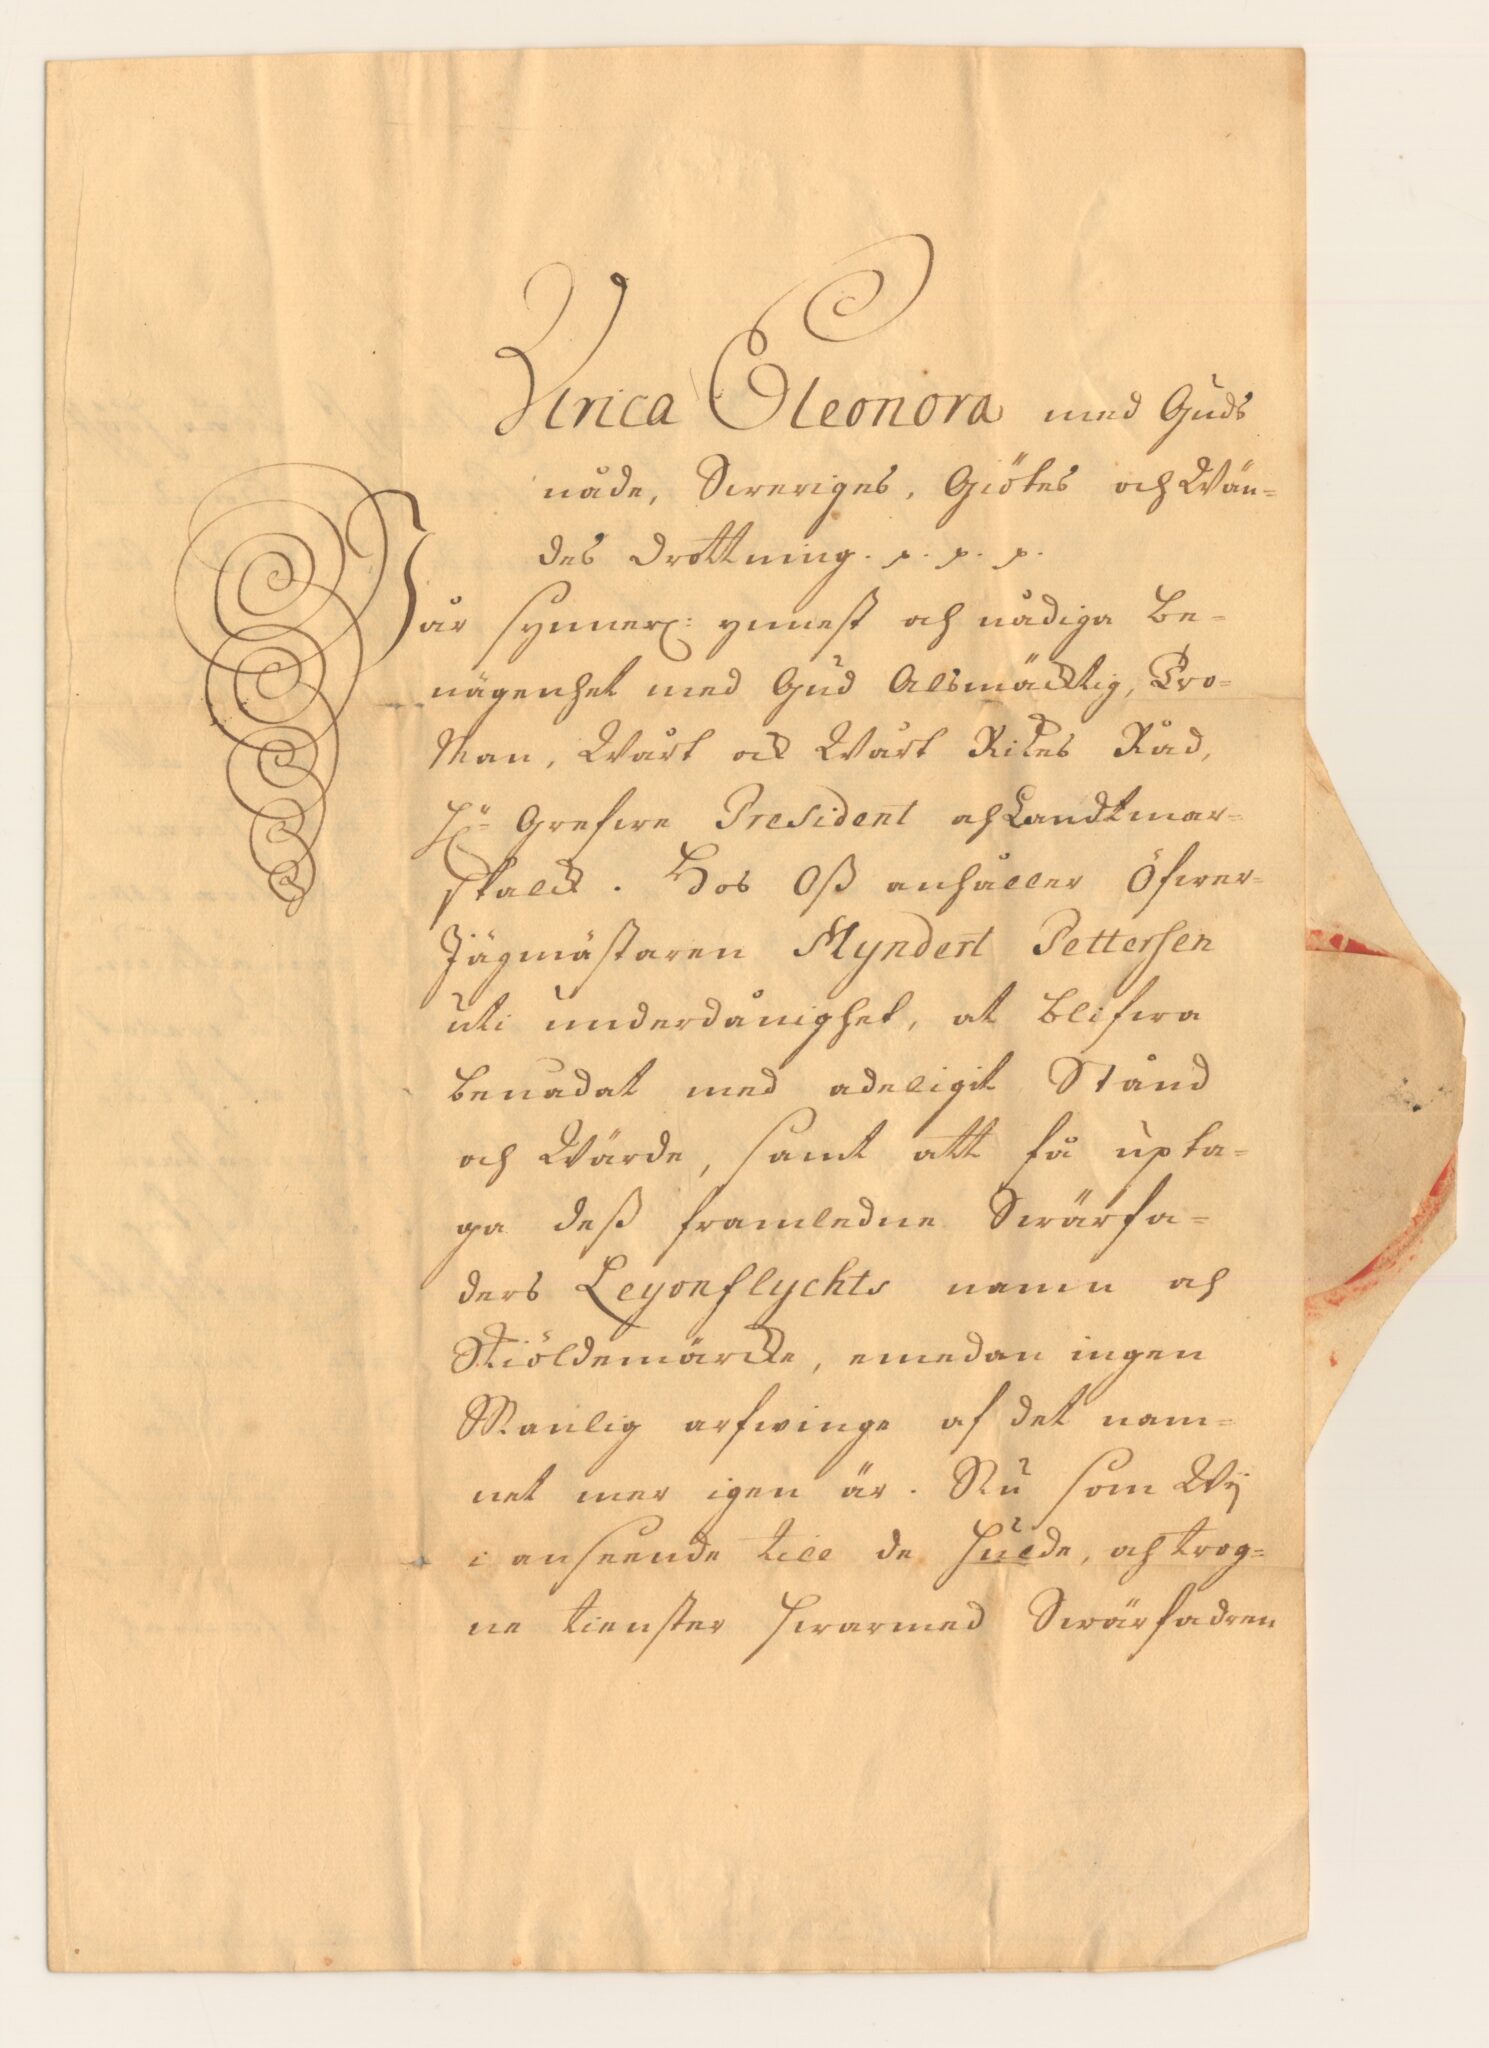 Ulrica Eleonora med Guds
nåde, Sweriges, Giötes och Wän=
des Drottning. p. p. p.
Vår synner: ynnest och nådiga be=
nägenhet med Gud Alsmäcktig, Tro=
Man, Wårt och Wårt Rikes Råd,
Hr Grefwe President och Landtmar=
skalck. Hos Oß anhåller Öfwer=
Jägmästaren Myndert Pettersen
uti underdånighet, at blifwa
benådat med adeligit Stånd
och Wärde, samt att få upta=
ga deß framledne Swärfa=
ders Leyonflychts namn och
Skiöldemärcke, emedan ingen
Manlig arfwinge af det nam=
net mer igen är. Nu som Wij
i anseende till de hulde, och trog=
ne tienster hwarmed Swärfadren